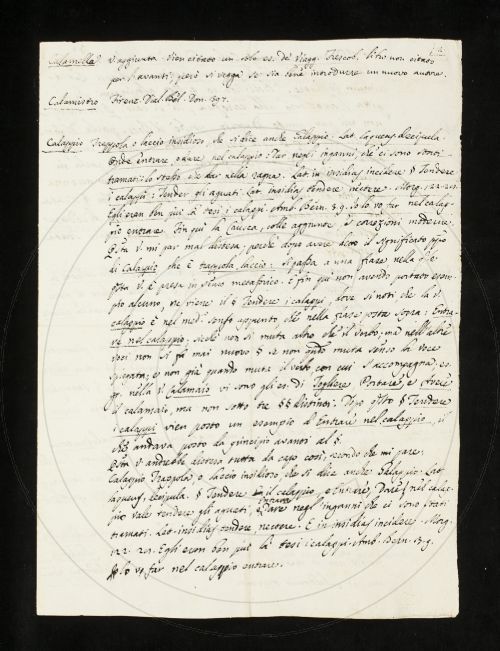 Calamella. V. aggiunta. Vien citato un solo es. de' Viagg. Frescob. libro non citato
per l'avanti; però si vegga se sia bene introdurre un nuovo autore.
Calamistro Firenz. Dial. Bell. Don. 397.
Calappio Trappola o laccio insidioso, che si dice anche Galappio. Lat. laqueus, decipula.
Onde entrare, o dare nel calappio: Dar negl' inganni che ci sono stati
tramati: lo stesso che dar nella ragna. Lat. in insidias incidere. § Tendere
i calappi: Tender gli aguati. Lat. insidias tendere, nectere. Morg. 22. 29.
Egli eran ben qui da tesi i calappi. Ant. Bern. 3. 9. Solo vo far nel calap-
pio entrare. Fin qui la Crusca, colle aggiunte, e correzioni
V. mi par mal distesa; perchè dopo avere dato il significato
di Calappio che è trappola, laccio: si passa a una frase nella
V. è presa in senso metaforico. E fin qui non avendo portato esem-
pio alcuno, ne viene il § Tendere i calappi, dove si noti che la v.
calappio è nel med. senso appunto che nella frase posta sopra: Entra-
re nel calappio. Sicchè non si muta altro che il verbo: ma nell'altre
voci non si fa mai nuovo § se non quando muta senso la voce
spiegata; e non già quando muta il verbo con cui s'accompagna; es.
gr. nella v. Calamaio vi sono gli es. di Togliere Portare, e Avere
il calamaio, ma non sotto tre §§ distinti. Dopo questo § Tendere
i calappi vien posto un esempio d'Entrare nel calappio, il
che andava posto da principio avanti al §.
V. andrebbe distesa tutta da capo così, secondo che mi pare.
Calappio Trappola, o laccio insidioso che si dice anche Galappio. Lat.
laqueus, decipula. § Tendere il calappio, e Entrare, Dare nel calap-
pio vale tendere gli aguati, Entrare Dare negl' inganni che ci sono stati
tramati. Lat. insidias tendere, nectere. E in insidias incidere. Morg.
22. 29. Egli eron ben qui da tesi i calappi. Ant. Bern. 3. 9.
Solo vo far nel calappio entrare.